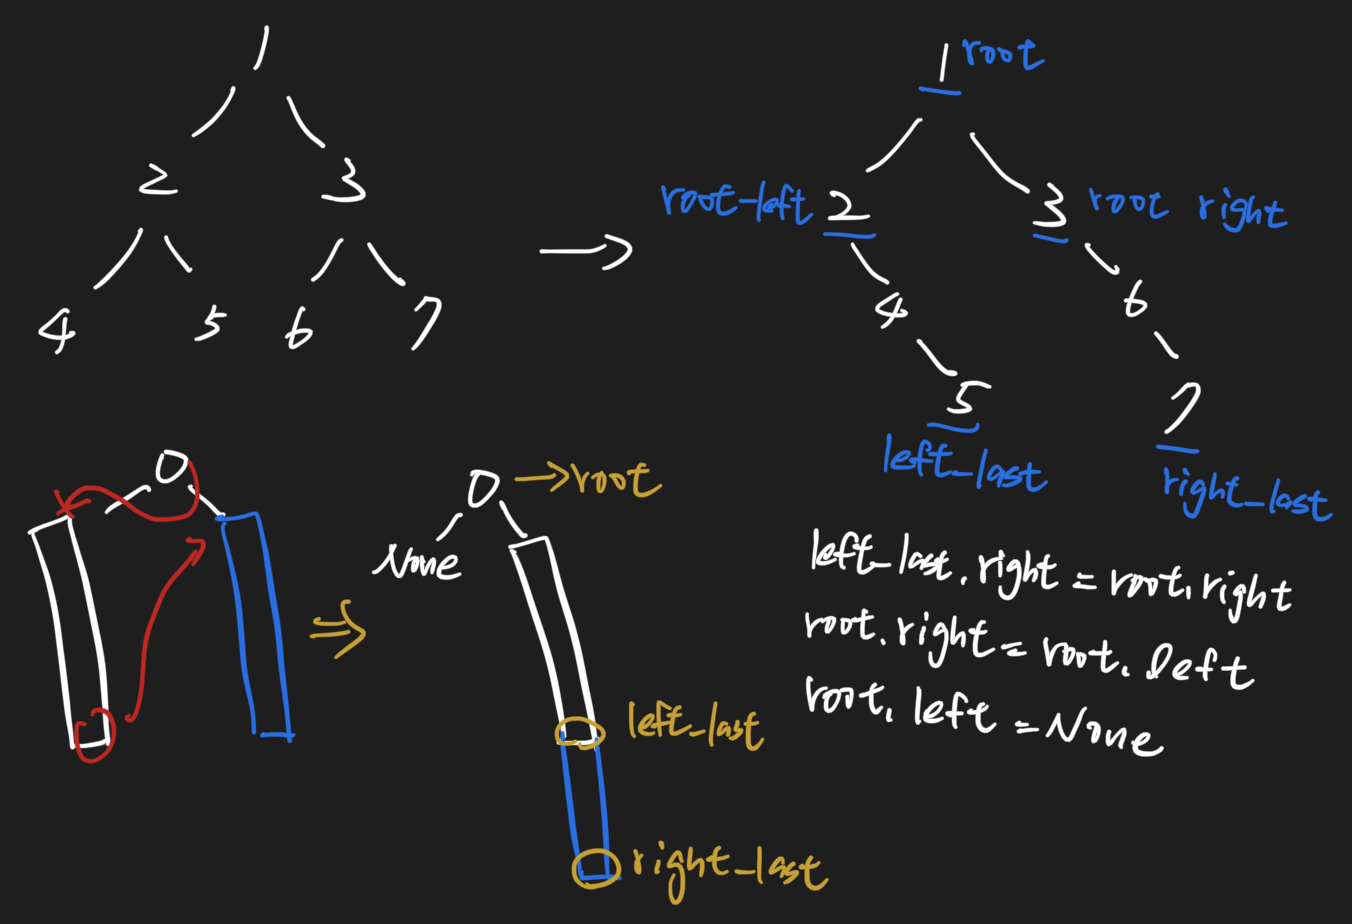 1
2 3
4 5 6 7
1 root
root-left 2
3 root right
4
6
5
left_last
7
right_last
0
0 root
None
left_last
right_last
left_last.right = root.right
root.right = root.left
root.left = None